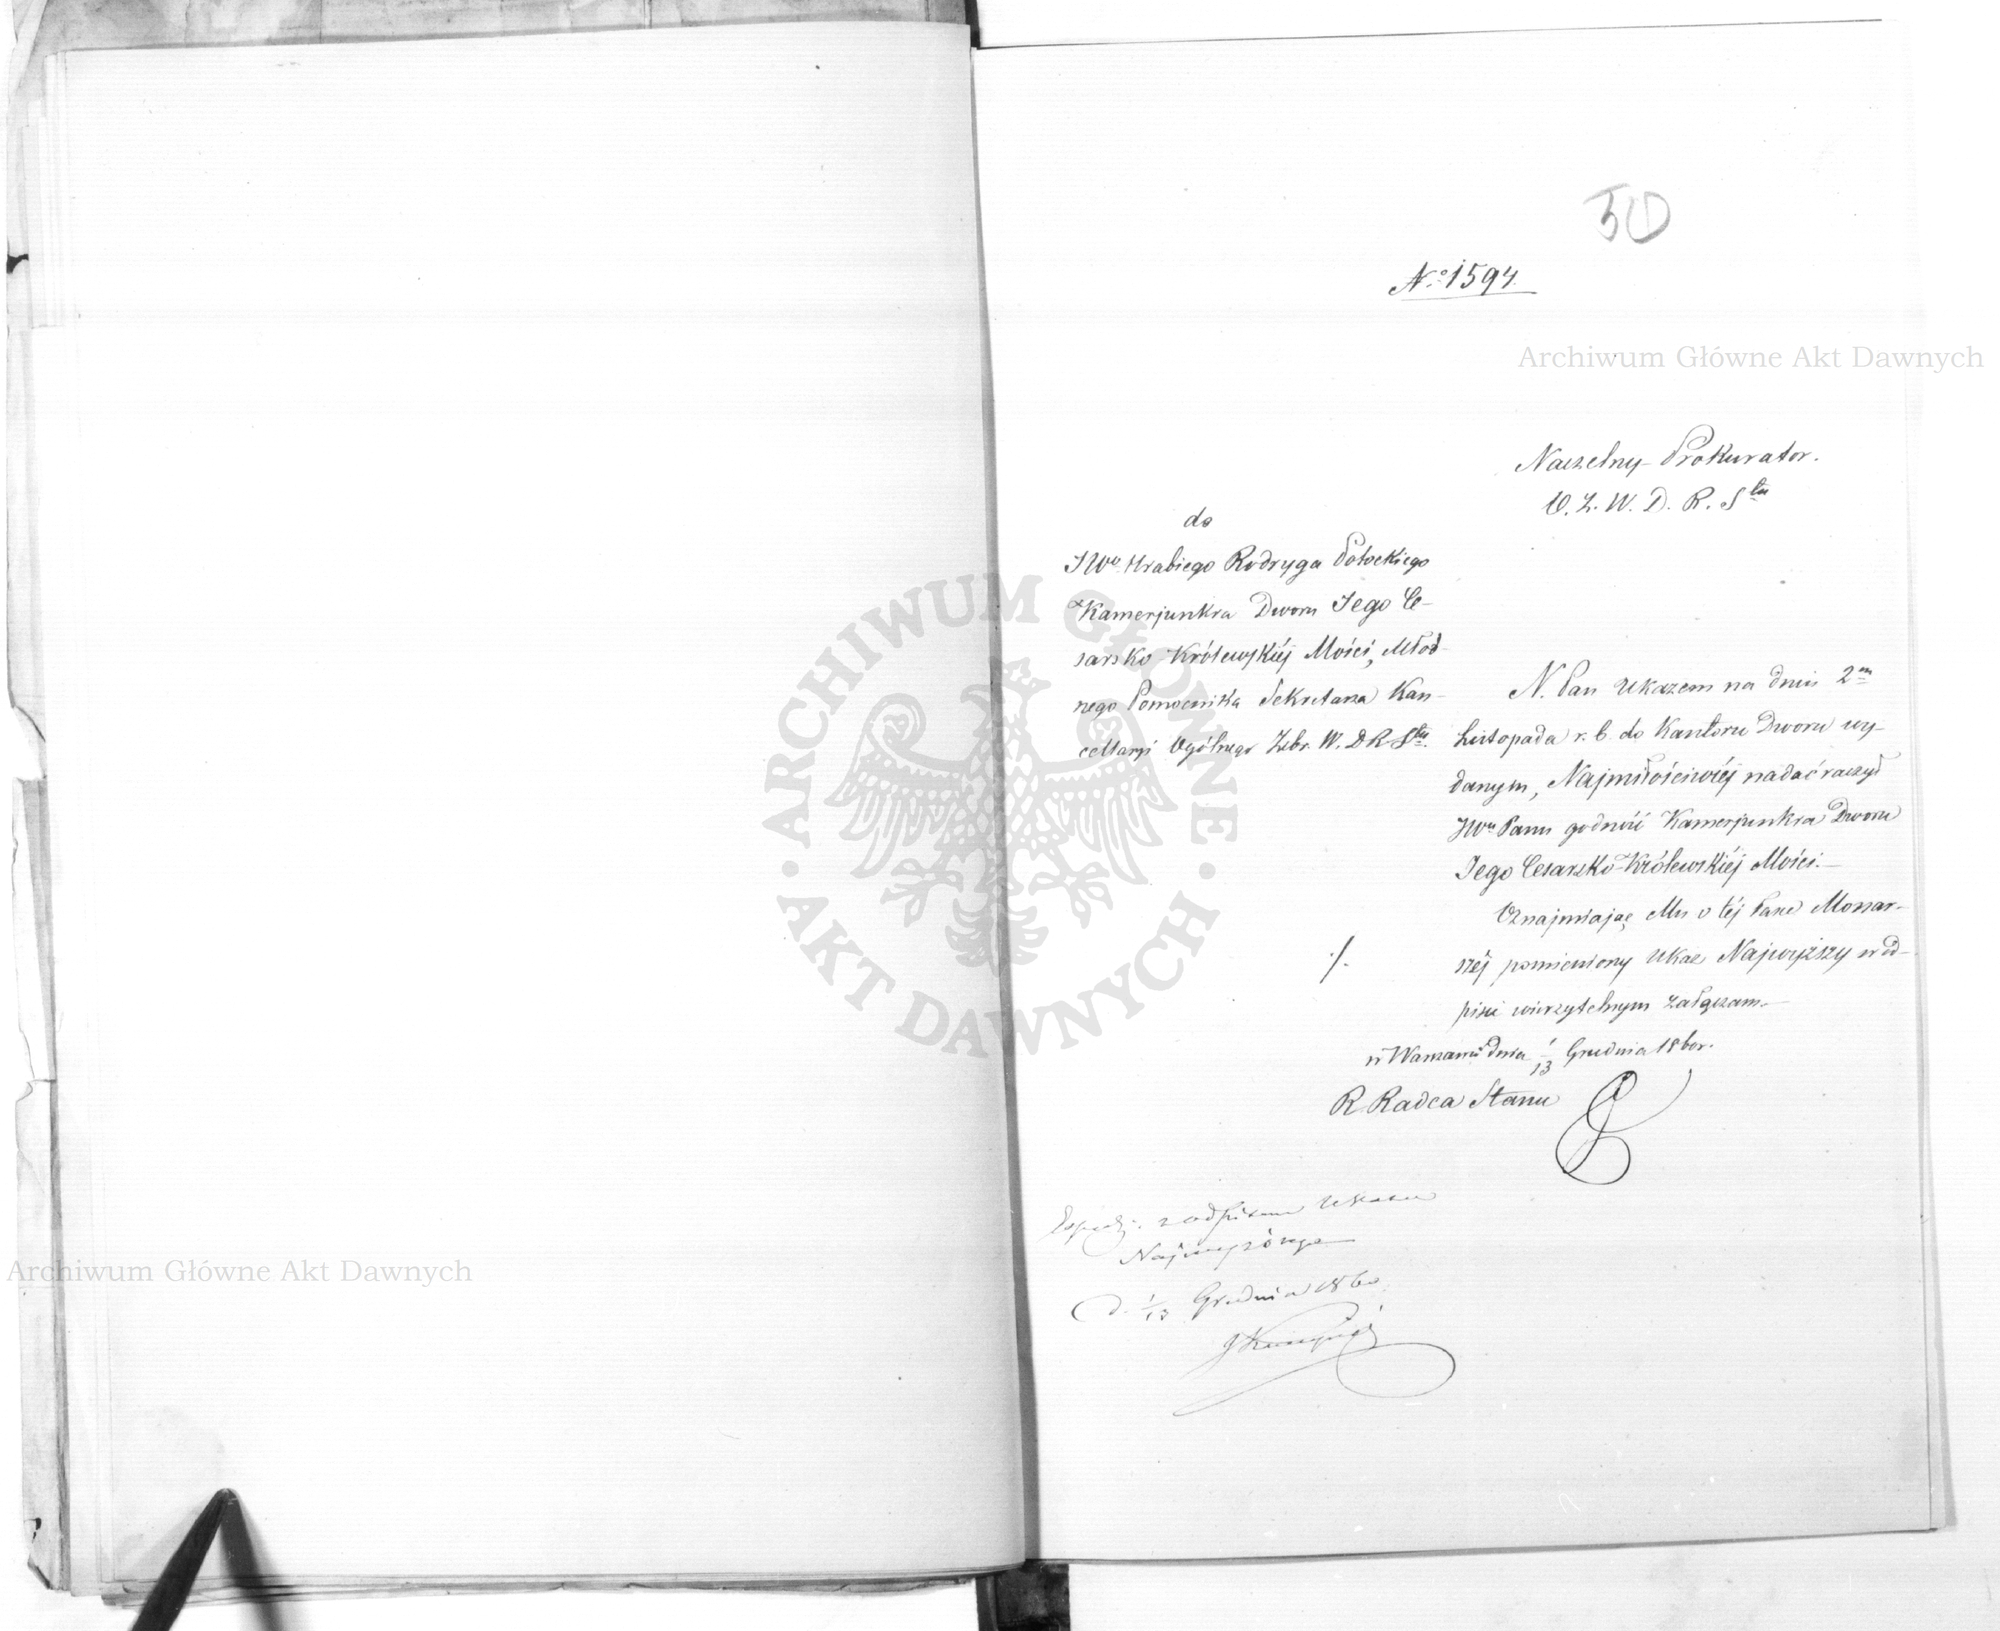 50
№ 1594.
Archiwum Główne Akt Dawnych
Naczelny Prokurator.
O. Z. W. D. R. Stu
do
JWo Hrabiego Rodryga Potockiego
Kamerjunkra Dworu Jego Ce-
sarsko Królewskiéj Mości, Młod-
nego Pomocnika Sekretarza Kan-
cellaryi Ogólnego Zebr. W. D R Stu.
N. Pan Ukazem na dniu 2m
Listopada r. b. do Kantoru Dworu wy-
danym, Najmiłościwiéj nadać raczył
JWu Panu godność Kamerjunkra Dworu
Jego Cesarsko-Królewskiéj Mości.
Oznajmiając Mu o téj Łasce Monar-
széj pomieniony Ukaz Najwyższy w od-
pisie wierzytelnym załączam.
./.
w Warszawie dnia 1/13 Grudnia 1860 r.
R. Radca Stanu
z odpisem Ukazu
Najwyższego
d. 1/13 Grudnia 1860
ARCHIWUM GŁÓWNE · AKT DAWNYCH ·
Archiwum Główne Akt Dawnych